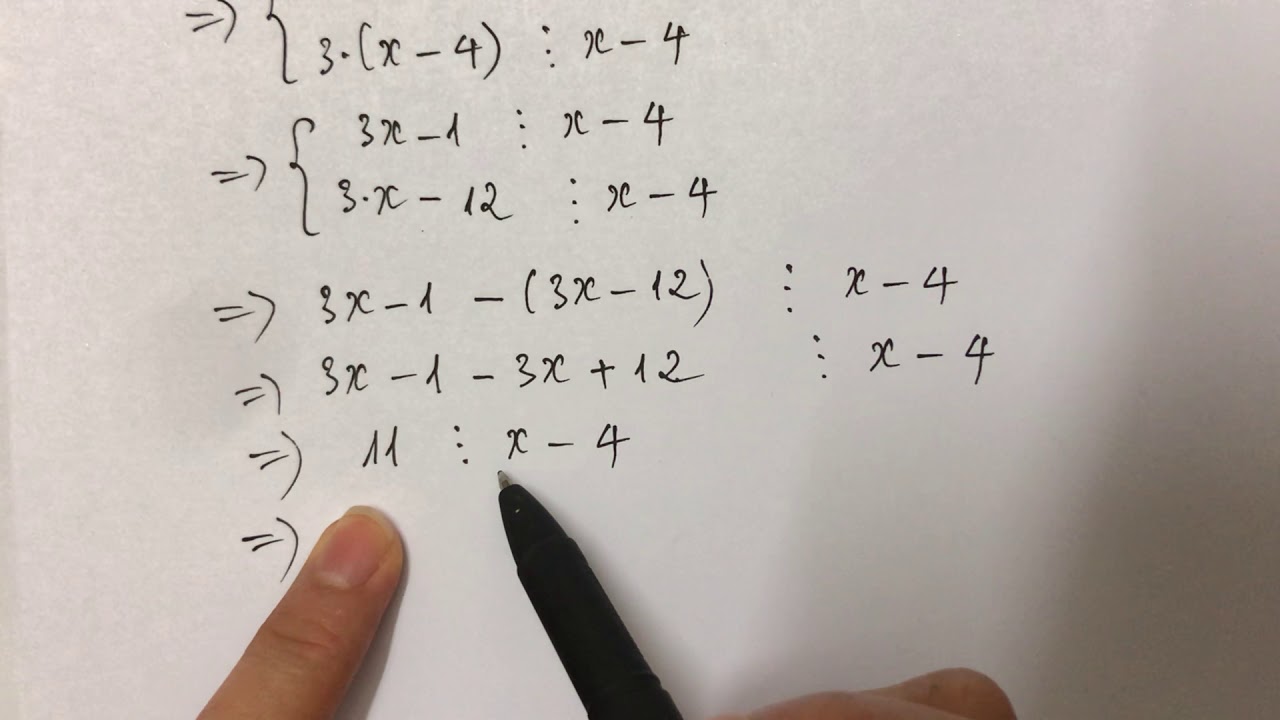 => { 3·(x - 4) ⋮ x - 4
=> { 3x - 1 ⋮ x - 4
3·x - 12 ⋮ x - 4
=> 3x - 1 - (3x - 12) ⋮ x - 4
=> 3x - 1 - 3x + 12 ⋮ x - 4
=> 11 ⋮ x - 4
=>